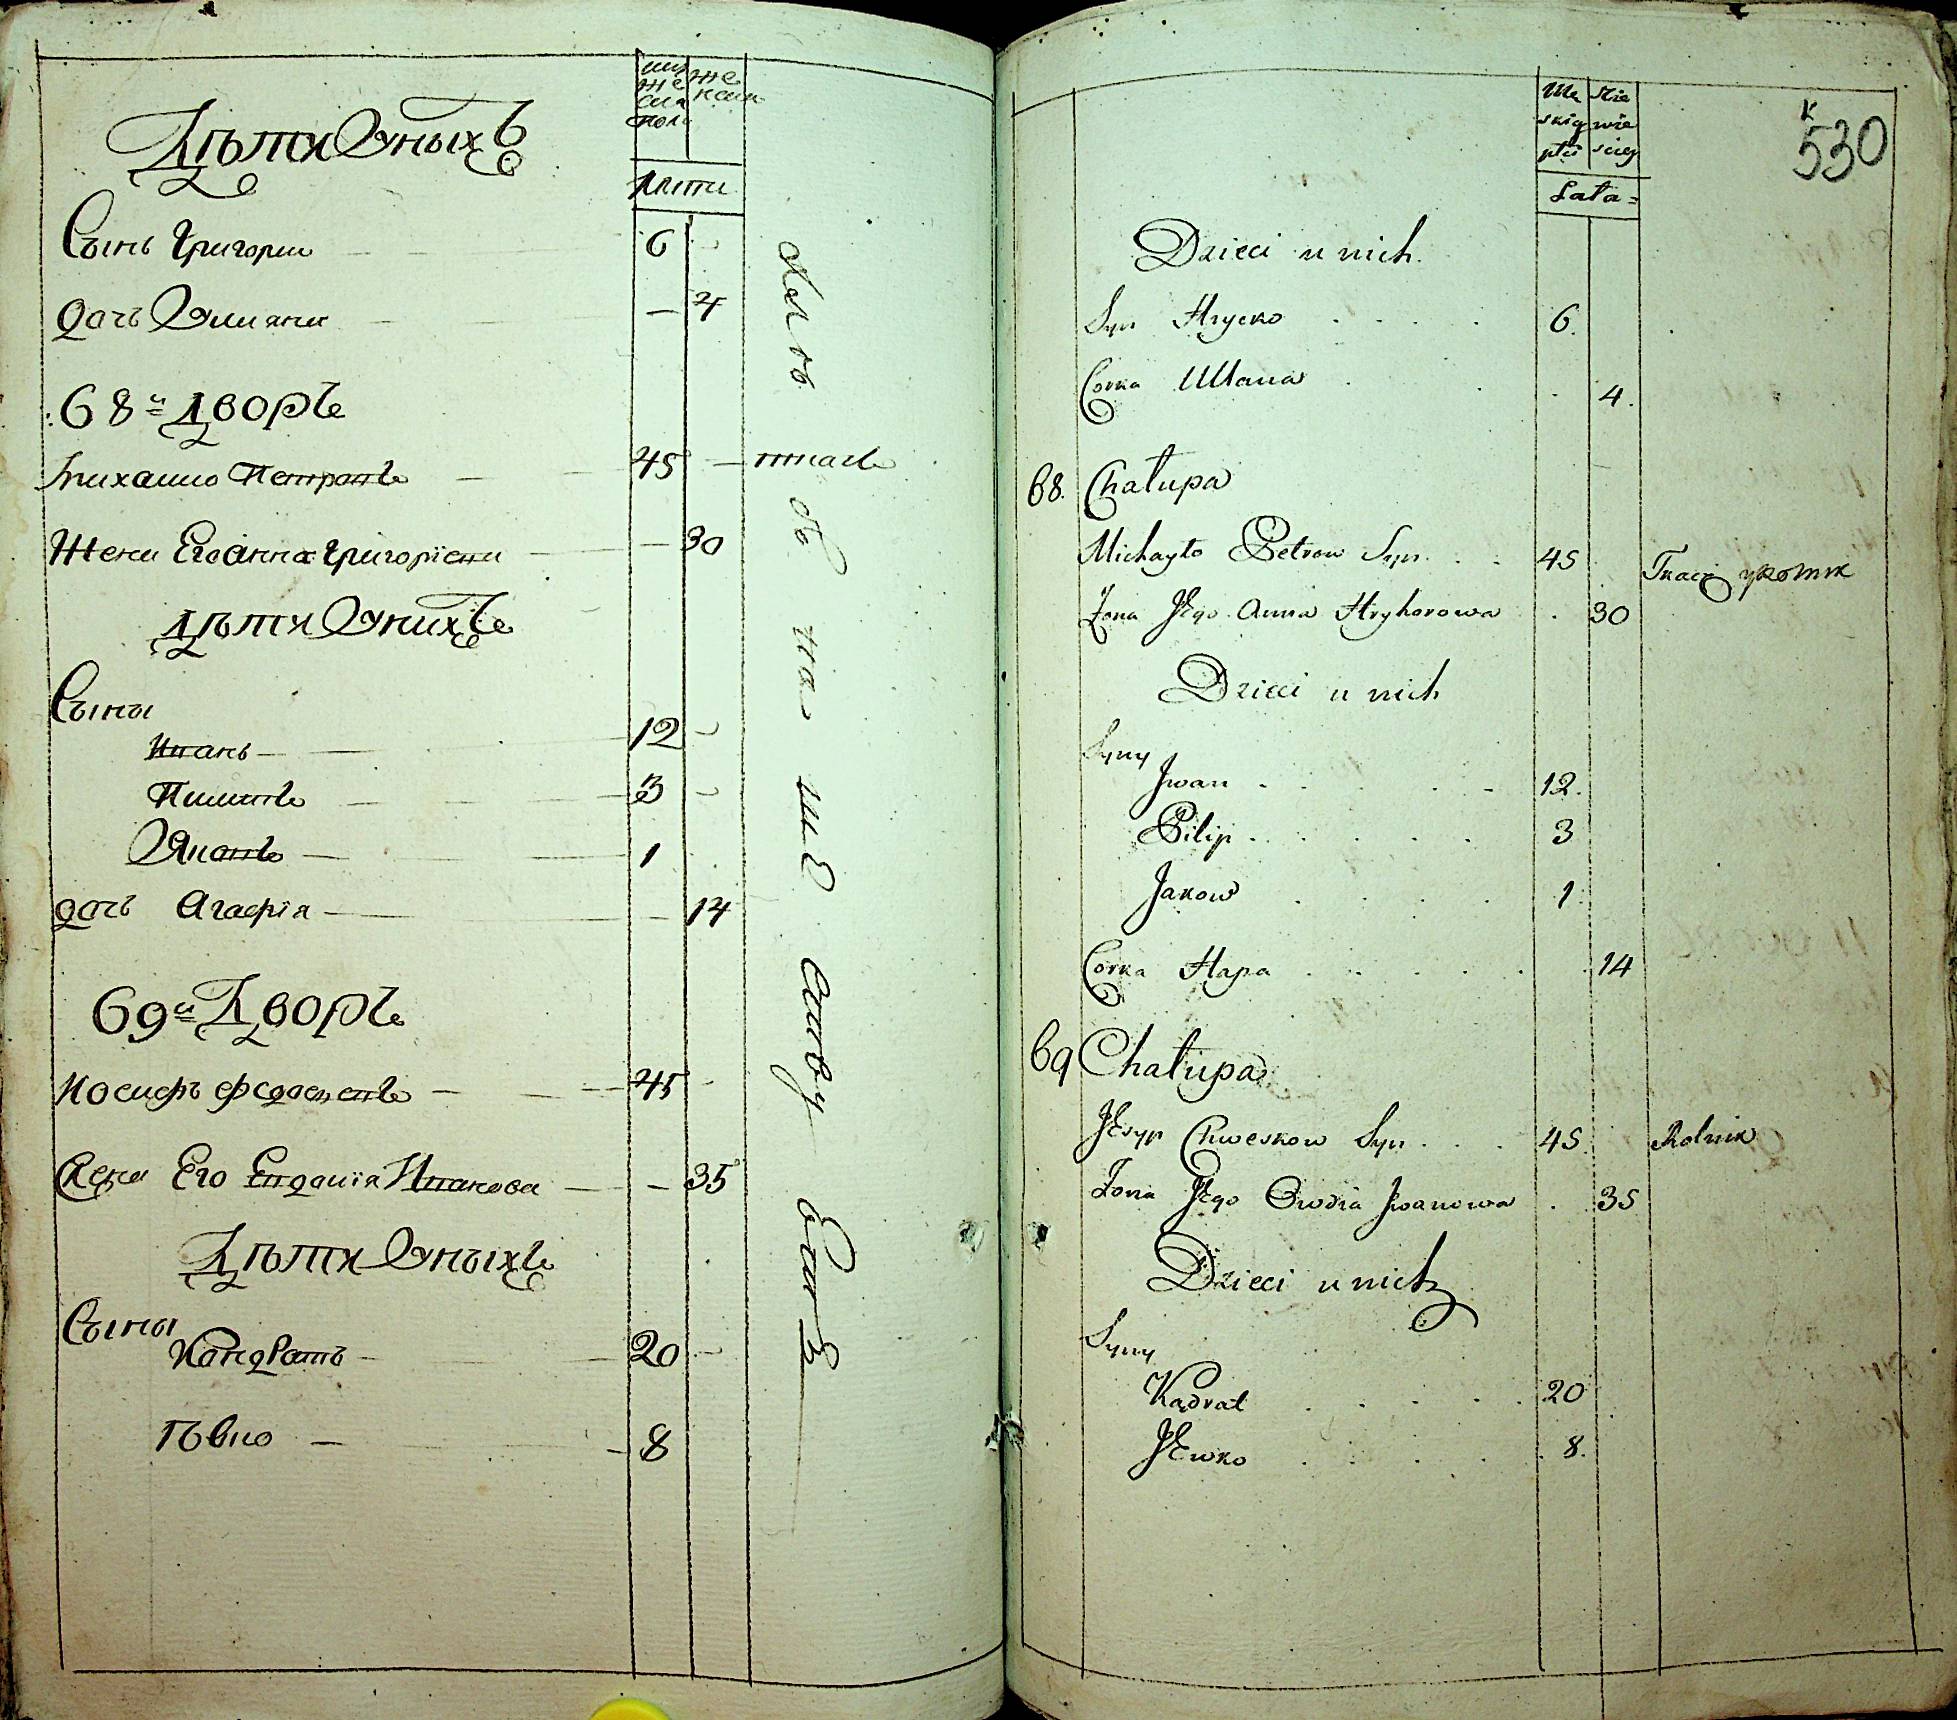 муже
ска
пола
женска
лѣти
Дѣти Уныхъ
Сынъ Григории 6
дочь Улияни 4
68й Дворъ
Михаило Петровъ 45 ткачь
Жена Его Анна Григориева 30
Дѣти Унихъ
Сыны
Иванъ 12
Пилипъ 3
Яковъ 1
дочь Агафія 14
69й Дворъ
Иосифъ Федосиевъ 45
Жена Его Евдокія Иванова 35
Дѣти Уныхъ
Сыны
Кондратъ 20
Ѣвко 8
530
Mę skiey płci
Nie wie sciey
Lata
Dzieci u nich
Syn Hrycko 6
Corka Ullana 4
68. Chałupa
Michayło Petrow Syn 45 Tkacz
Zona Jego Anna Hryhorowa 30
Dzieci u nich
Syny
Jwan 12
Pilip 3
Jakow 1
Corka Hapa 14
69 Chałupa
Jesyp Chweskow Syn 45 Rolnik
Zona Jego Owdia Jwanowa 35
Dzieci u nich
Syny
Kądrat 20
Jewko 8